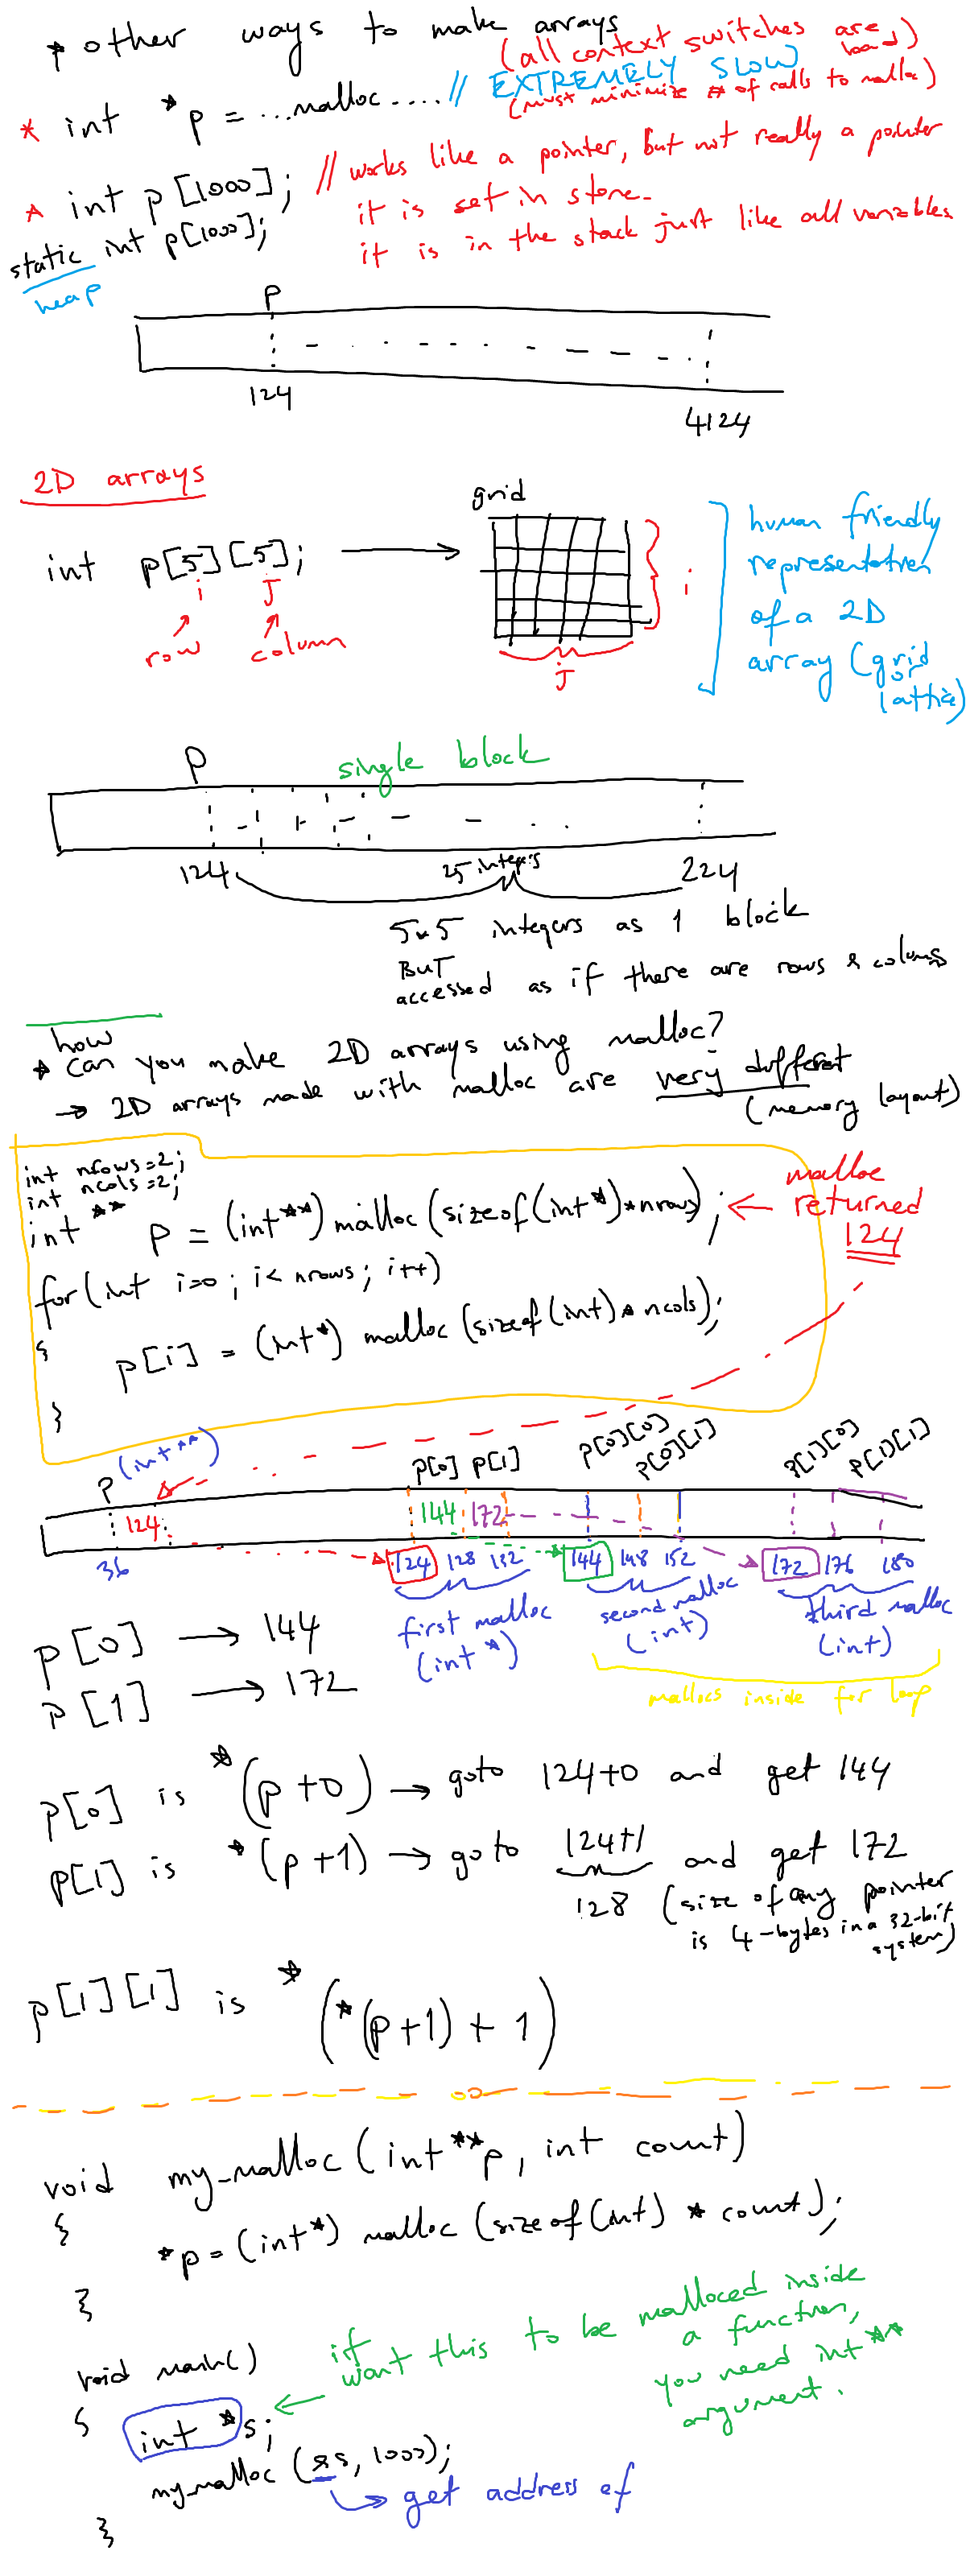 * other ways to make arrays
(all context switches are bad)
* int *p = ...malloc....// EXTREMELY SLOW
(must minimize # of calls to malloc)
* int p[1000]; // works like a pointer, but not really a pointer
it is set in stone.
static int p[1000]; it is in the stack just like all variables
heap
p
124
4124
2D arrays
grid
int p[5][5];
i J
row column
i
J
human friendly
representation
of a 2D
array (grid
or
lattice)
p
single block
124 25 integers 224
5x5 integers as 1 block
BUT
accessed as if there are rows & columns
how
* can you make 2D arrays using malloc?
→ 2D arrays made with malloc are very different
(memory layout)
int nrows=2;
int ncols=2;
int ** p = (int**) malloc (sizeof(int*)*nrows);
malloc
returned
124
for (int i=0; i< nrows; i++)
{
p[i] = (int*) malloc (sizeof(int)*ncols);
}
p (int**) p[0] p[1] p[0][0] p[0][1] p[1][0] p[1][1]
124 144 172
36 124 128 132 144 148 152 172 176 180
first malloc
(int *)
second malloc
(int)
third malloc
(int)
mallocs inside for loop
p[0] → 144
p[1] → 172
p[0] is *(p+0) → goto 124+0 and get 144
p[1] is *(p+1) → goto 124+1 and get 172
128 (size of any pointer
is 4-bytes in a 32-bit
system)
p[1][1] is *(*(p+1)+1)
void my_malloc (int **p, int count)
{
*p = (int*) malloc (sizeof(int) * count);
}
void main()
{
int *s;
my_malloc (&s, 1000);
}
if
want this to be malloced inside
a function,
you need int**
argument.
get address of